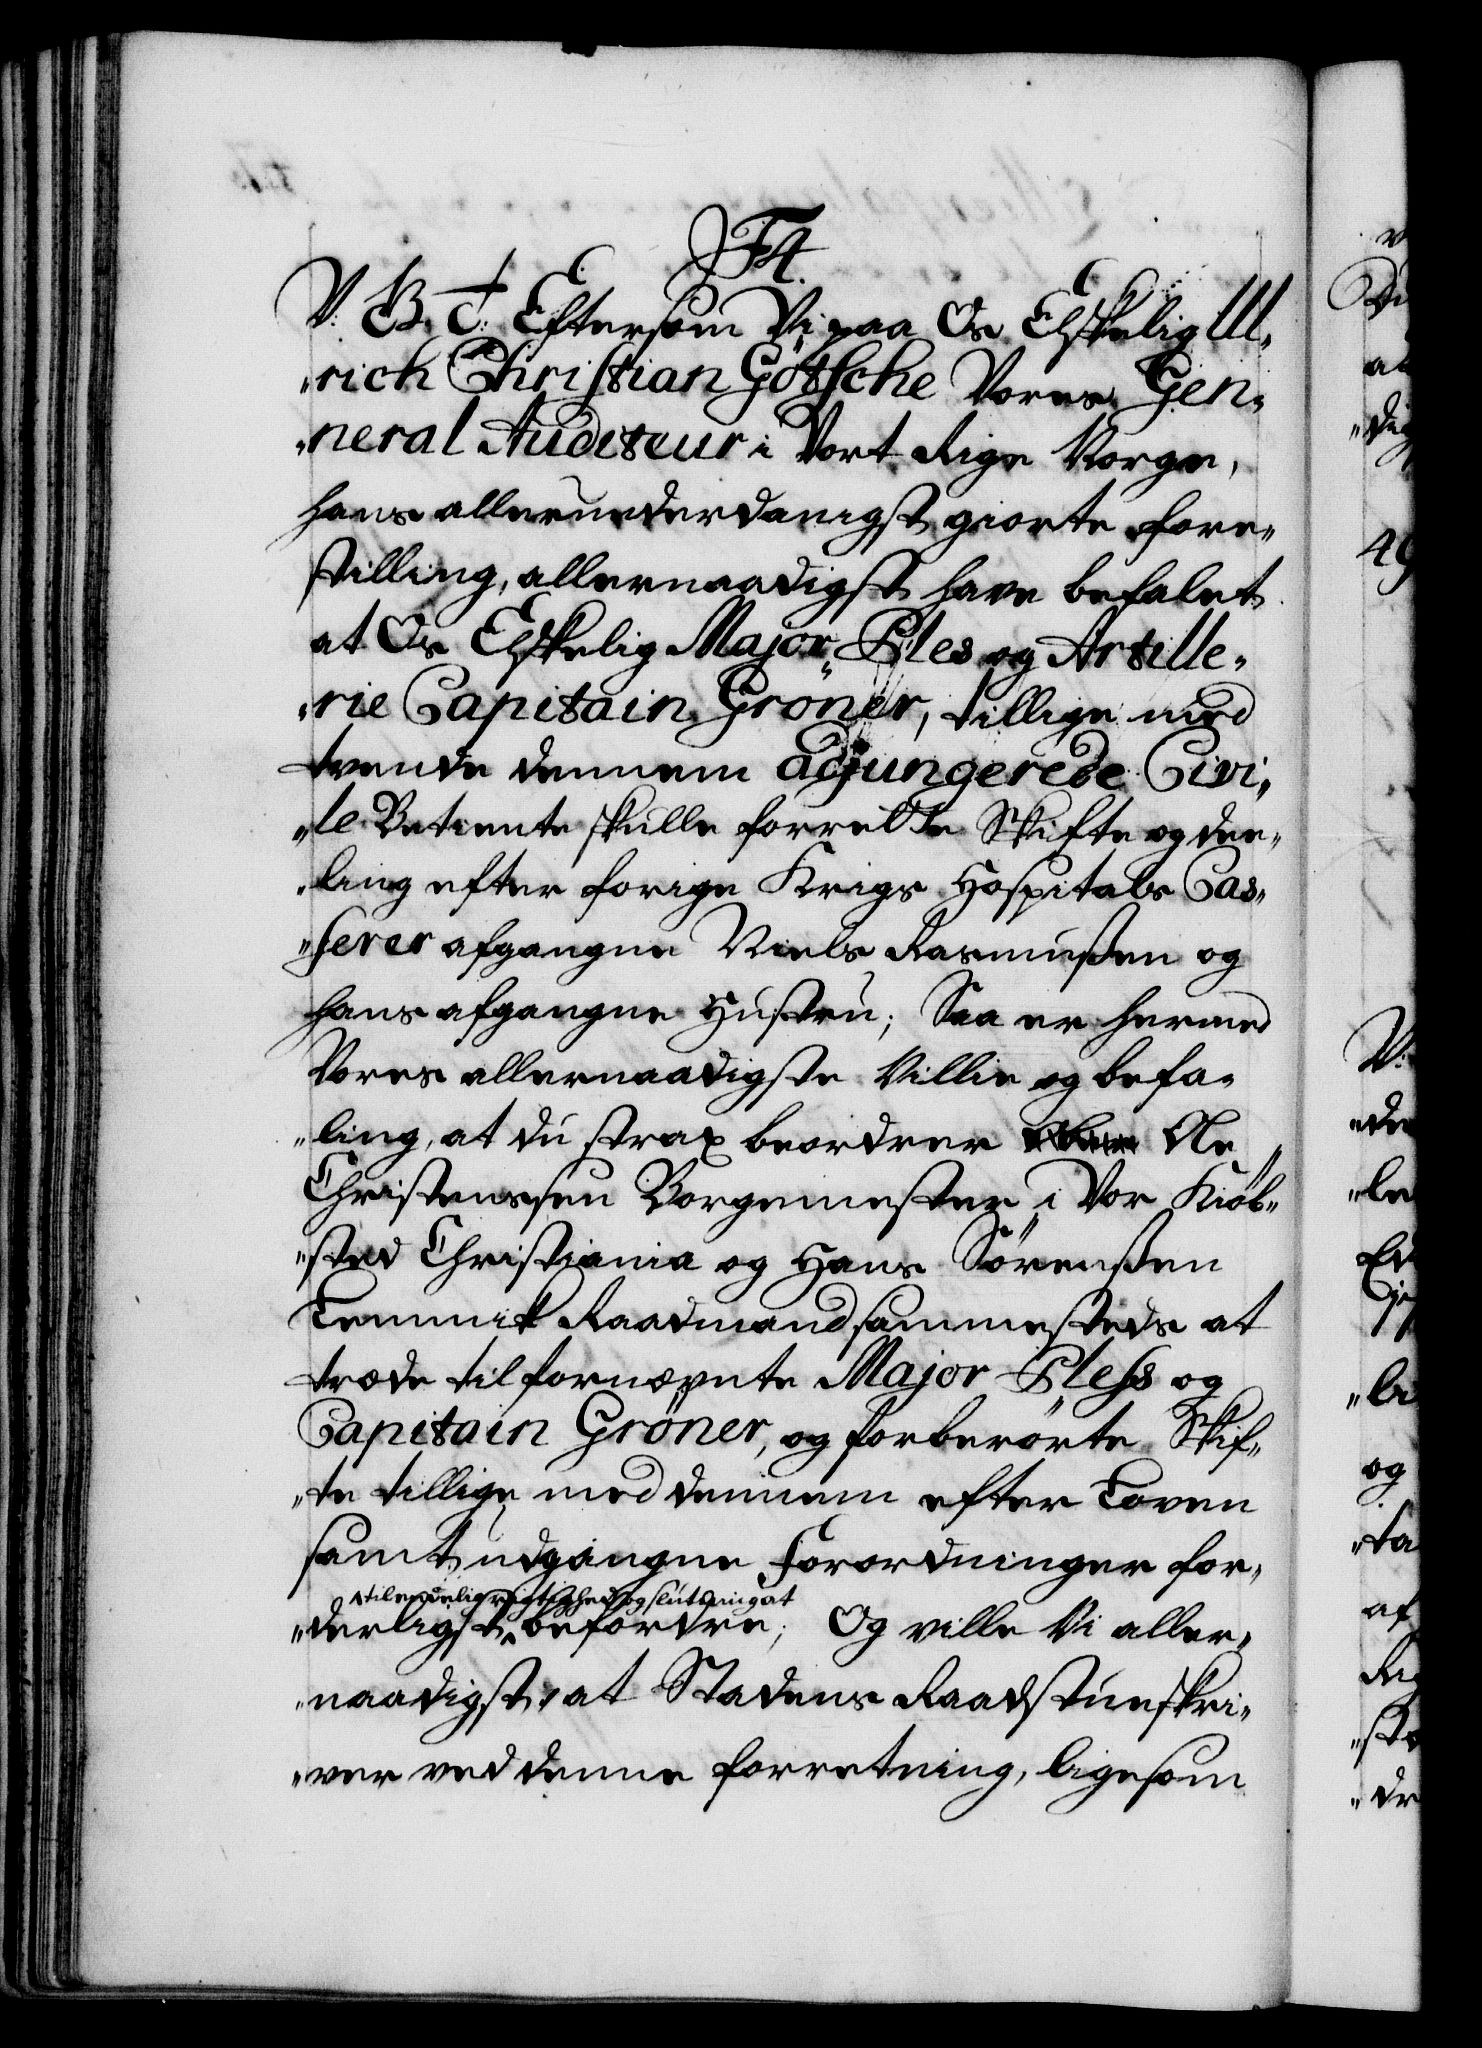 F4.
V. B. T. Eftersom Vi paa Os Elskelig Ul„
„rich Christian Götsche Vores Gen„
„neral Auditeur i Vort Rige Norge,
hans allerunderdanigst giorte fore„
stilling, allernaadigst have befalet
at Os Elskelig Major Ples og Artille„
„rie Capitain Gröner, tillige med
tvende dennem adjungerede Civi„
„le Betiente skulle forrette Skifte og dee„
„ling efter forige Krigs Hospitals Cas„
„serer afgangne Niels Rasmußen og
hans afgangne Hustru; Saa er hermed
Vores allernaadigste Villie og befa„
„ling, at du strax beordrer Ole
Christenssen Borgemester i Vor Kiöb„
„sted Christiania og Hans Sörenßen
Lemmik Raadmand sammesteds at
træde til fornævnte Major Pless og
Capitain Gröner, og forberörte Skif„
„te tillige med dennem efter Loven
samt udgangne Forordninger for„
til endelig rigtighed og slutning at
„derligst befordre; Og ville Vi aller„
„naadigst, at Stadens Raadstueskri„
„ver ved denne forretning, ligesom